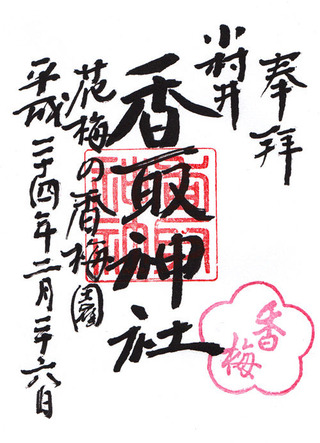 奉拝
小村井
香取神社
花梅の香梅園
平成二十四年二月二十六日
香梅